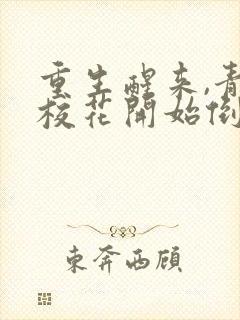 重生醒来,青
校花開始倒
東奔西顾